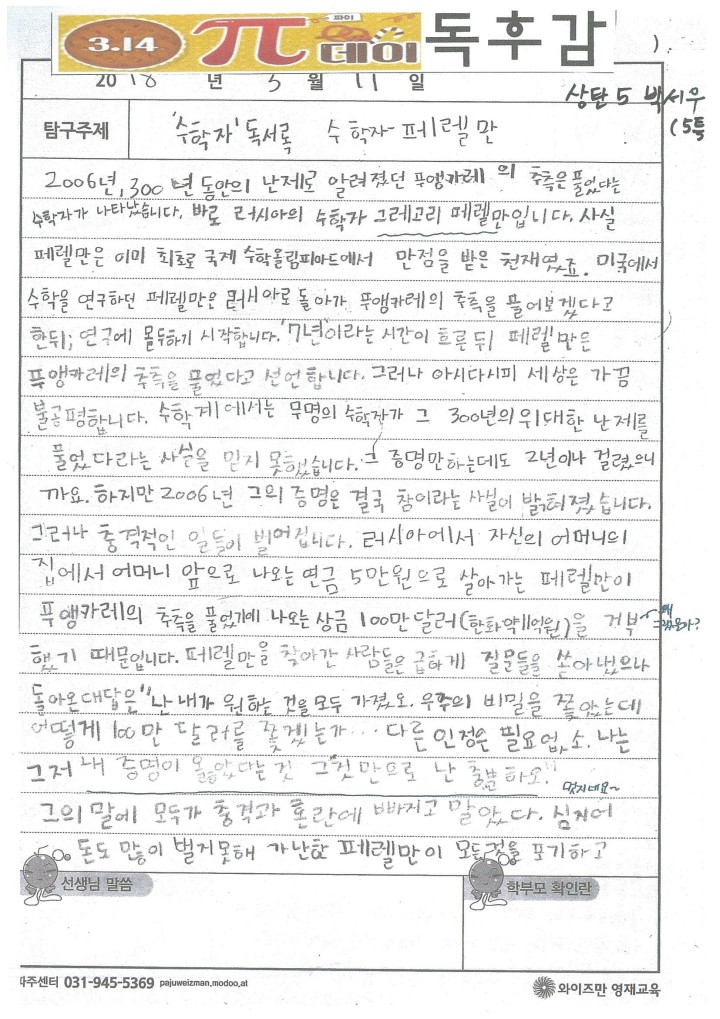 3.14 π 파이 데이 독후감 ).
2018 년 3 월 11 일
상탄5 박세우
(5특
탐구주제 '수학자' 독서록 수학자 페렐만
2006년, 300년 동안의 난제로 알려졌던 푸앵카레의 추측은 풀었다는
수학자가 나타났습니다. 바로 러시아의 수학자 그레고리 페렐만입니다. 사실
페렐만은 이미 최초로 국제 수학올림피아드에서 만점을 받은 천재였죠. 미국에서
수학을 연구하던 페렐만은 러시아로 돌아가 푸앵카레의 추측을 풀어보겠다고
한뒤; 연구에 몰두하기 시작합니다. '7년'이라는 시간이 흐른뒤 페렐만은
푸앵카레의 추측을 풀었다고 선언합니다. 그러나 아시다시피 세상은 가끔
불공평합니다. 수학계에서는 무명의 수학자가 그 300년의 위대한 난제를
풀었다라는 사실을 믿지 못했습니다. 그 증명만하는데도 2년이나 걸렸으니
까요. 하지만 2006년 그의 증명은 결국 참이라는 사실이 밝혀졌습니다.
그러나 충격적인 일들이 벌어집니다. 러시아에서 자신의 어머니의
집에서 어머니 앞으로 나오는 연금 5만원으로 살아가는 페렐만이
푸앵카레의 추측을 풀었기에 나오는 상금 100만달러(한화약11억원)을 거부
왜
그랬을까?
했기 때문입니다. 페렐만을 찾아간 사람들은 급하게 질문들을 쏟아냈으나
돌아온대답은 "난 내가 원하는 것을 모두 가졌오. 우주의 비밀을 쫓았는데
어떻게 100만 달러를 쫓겠는가... 다른 인정은 필요없소. 나는
그저 내 증명이 옳았다는 것 그것만으로 난 충분하오."
멋지네요~
그의 말에 모두가 충격과 혼란에 빠지고 말았다. 심지어
돈도 많이 벌지못해 가난한 페렐만이 모든것을 포기하고
선생님 말씀 학부모 확인란
파주센터 031-945-5369 pajuweizman.modoo.at 와이즈만 영재교육